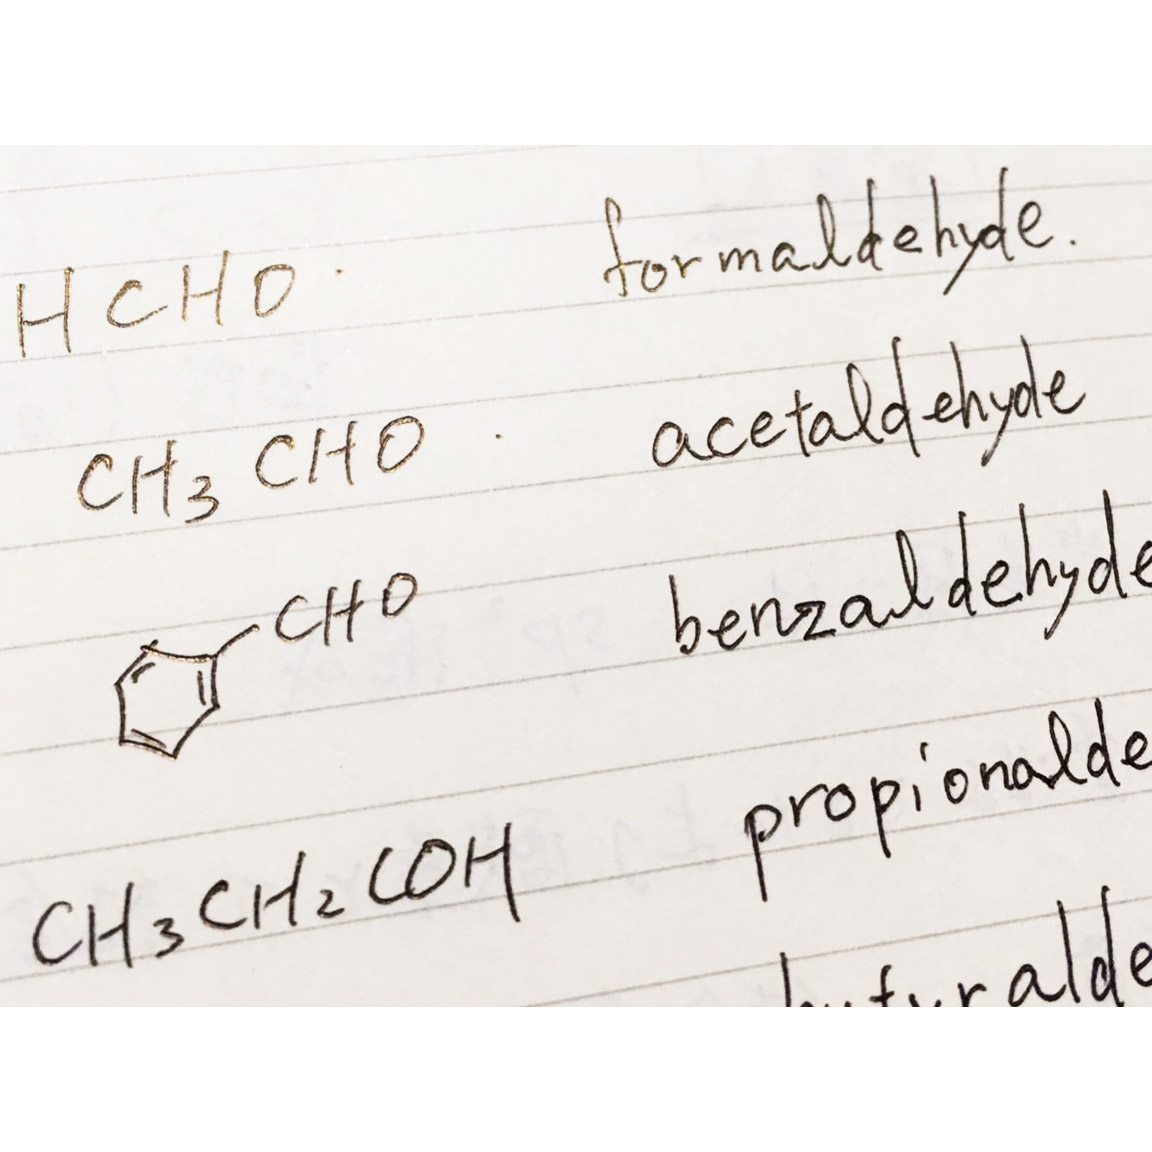 HCHO. formaldehyde.
CH₃CHO. acetaldehyde
CHO benzaldehyde
CH₃CH₂COH propionalde
butyralde